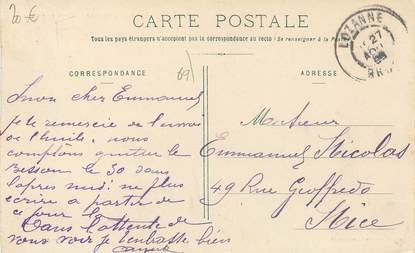 20 €
CARTE POSTALE
Tous les pays étrangers n'acceptent pas la correspondance au recto (Se renseigner à la
CORRESPONDANCE
69
ADRESSE
LOZANNE
27
Mon cher Emmanuel
je te remercie de l'envoi
de l'huile, nous
comptons quitter le
Besson le 30 dans
l'après midi ne plus
écrire à partir de
ce jour là
Dans l'attente de
vous voir je t'embrasse bien
Monsieur
Emmanuel Nicolas
49 Rue Gioffredo
Nice